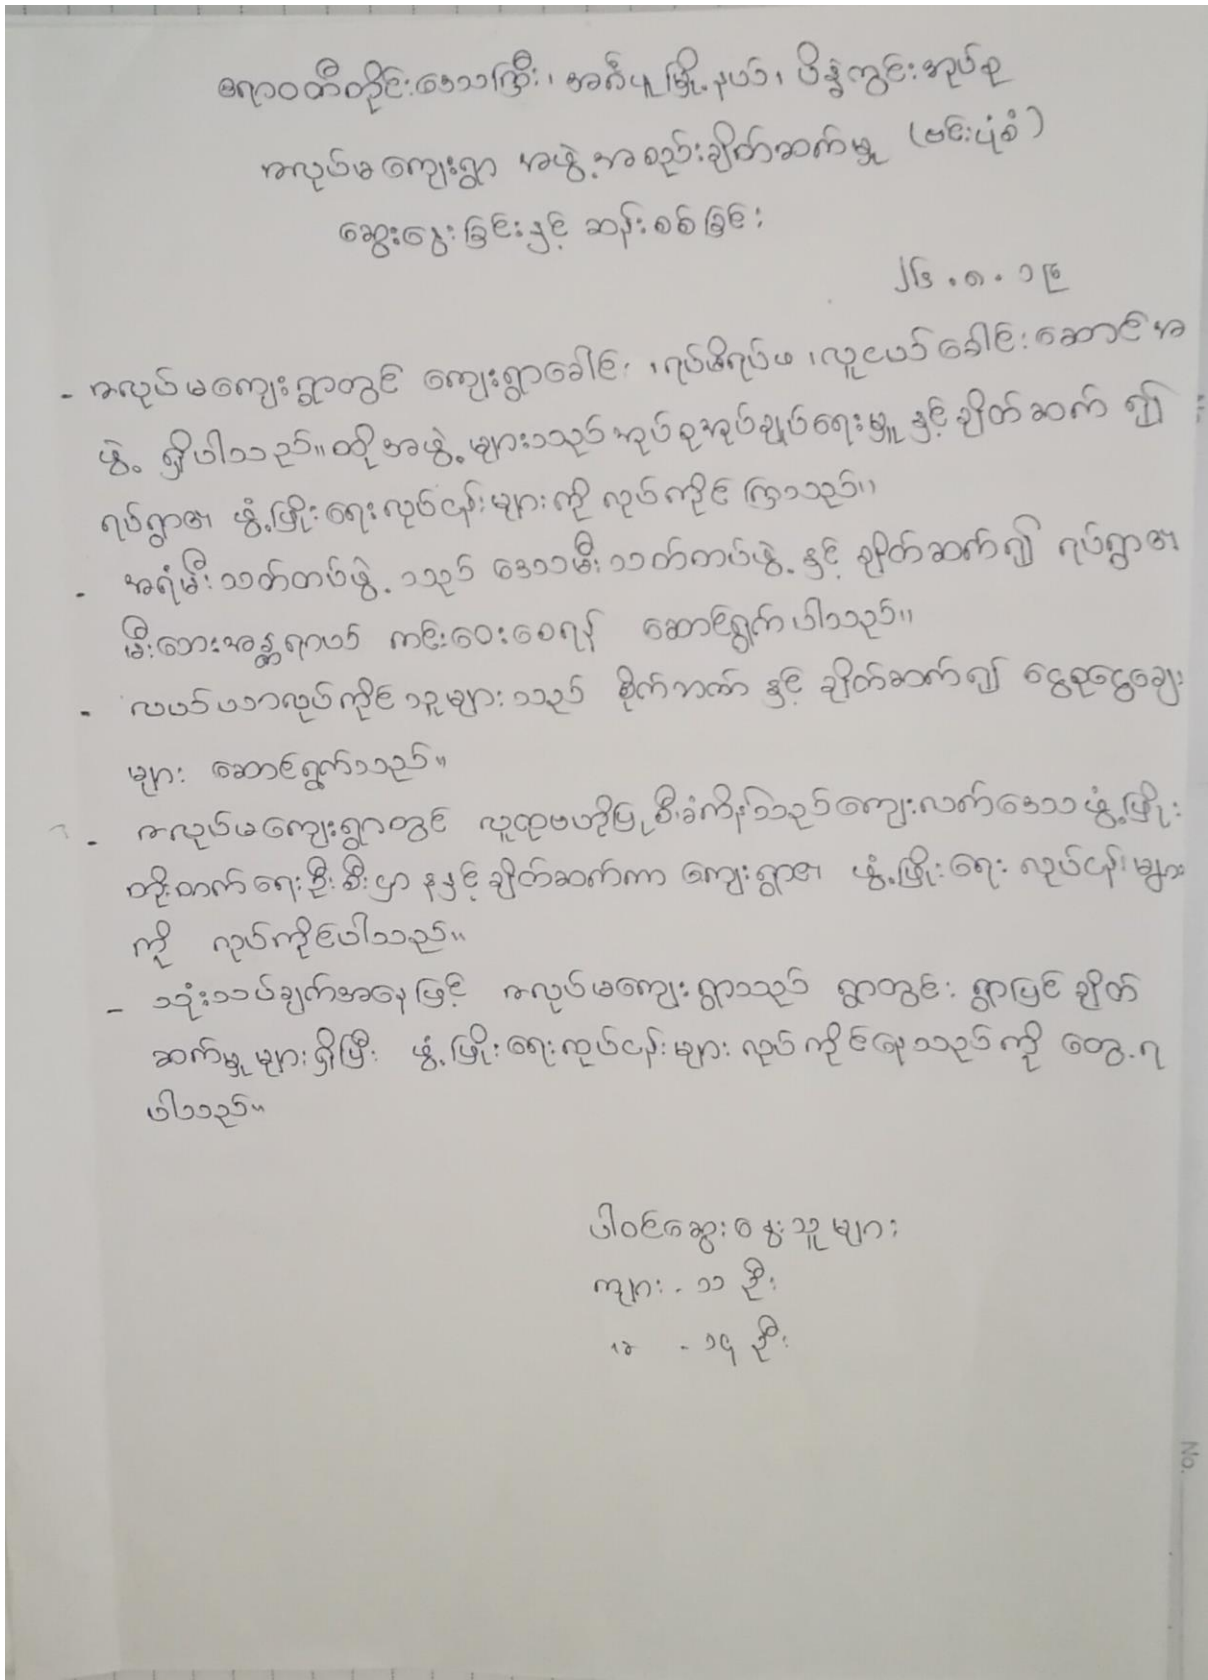 ဧရာဝတီတိုင်းဒေသကြီး၊ အင်္ဂပူမြို့နယ်၊ ပိန္နဲကွင်းအုပ်စု
အလုပ်မကျေးရွာ အဖွဲ့အစည်းချိတ်ဆက်မှု (ဗင်းပုံစံ)
ဆွေးနွေးခြင်းနှင့် ဆန်းစစ်ခြင်း
၂၆.၈.၁၉
- အလုပ်မကျေးရွာတွင် ကျေးရွာခေါင်း၊ ရပ်မိရပ်ဖ၊ လူငယ်ခေါင်းဆောင်အ
ဖွဲ့ ရှိပါသည်။ ထိုအဖွဲ့များသည်အုပ်စုအုပ်ချုပ်ရေးမှူးနှင့်ချိတ်ဆက်၍
ရပ်ရွာ၏ ဖွံ့ဖြိုးရေးလုပ်ငန်းများကို လုပ်ကိုင်ကြသည်။
- အရံမီးသတ်တပ်ဖွဲ့သည် ဒေသမီးသတ်တပ်ဖွဲ့နှင့် ချိတ်ဆက်၍ ရပ်ရွာ၏
မီးဘေးအန္တရာယ် ကင်းဝေးစေရန် ဆောင်ရွက်ပါသည်။
- လယ်ယာလုပ်ကိုင်သူများသည် စိုက်ဘဏ်နှင့် ချိတ်ဆက်၍ ငွေစုငွေချေး
များ ဆောင်ရွက်သည်။
- အလုပ်မကျေးရွာတွင် လူထုဗဟိုပြုစီမံကိန်းသည်ကျေးလက်ဒေသဖွံ့ဖြိုး
တိုးတက်ရေးဦးစီးဌာနနှင့်ချိတ်ဆက်ကာ ကျေးရွာ၏ ဖွံ့ဖြိုးရေးလုပ်ငန်းများ
ကို လုပ်ကိုင်ပါသည်။
- သုံးသပ်ချက်အနေဖြင့် အလုပ်မကျေးရွာသည် ရွာတွင်း ရွာပြင်ချိတ်
ဆက်မှုများရှိပြီး ဖွံ့ဖြိုးရေးလုပ်ငန်းများ လုပ်ကိုင်နေသည်ကို တွေ့ရ
ပါသည်။
ပါဝင်ဆွေးနွေးသူများ
ကျား - ၁၁ ဦး
မ - ၁၄ ဦး
No.